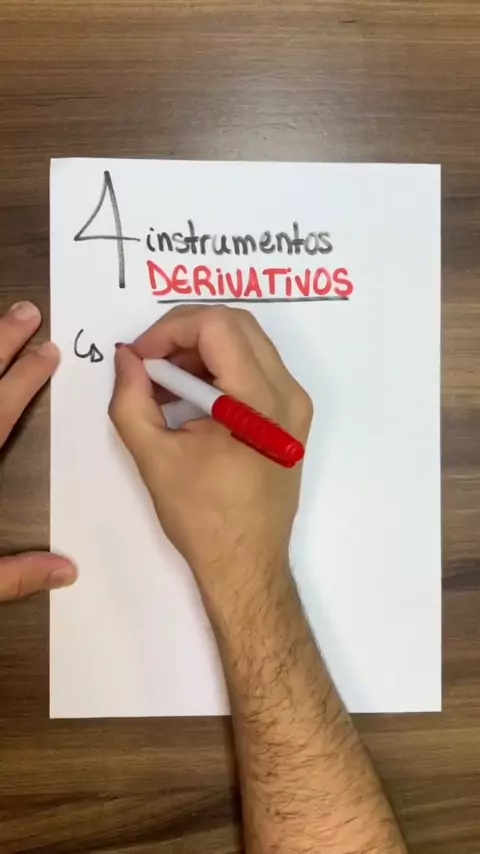 4 instrumentos
DERIVATIVOS